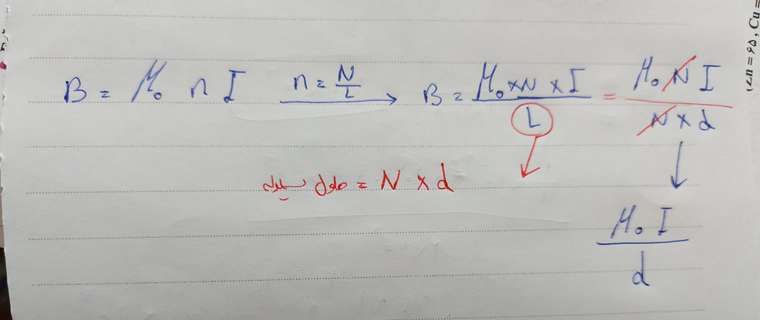 B = μ₀ n I   n = N/L →   B = μ₀ × N × I / L = μ₀ N I / N × d
طول سیلوله = N × d
μ₀ I / d